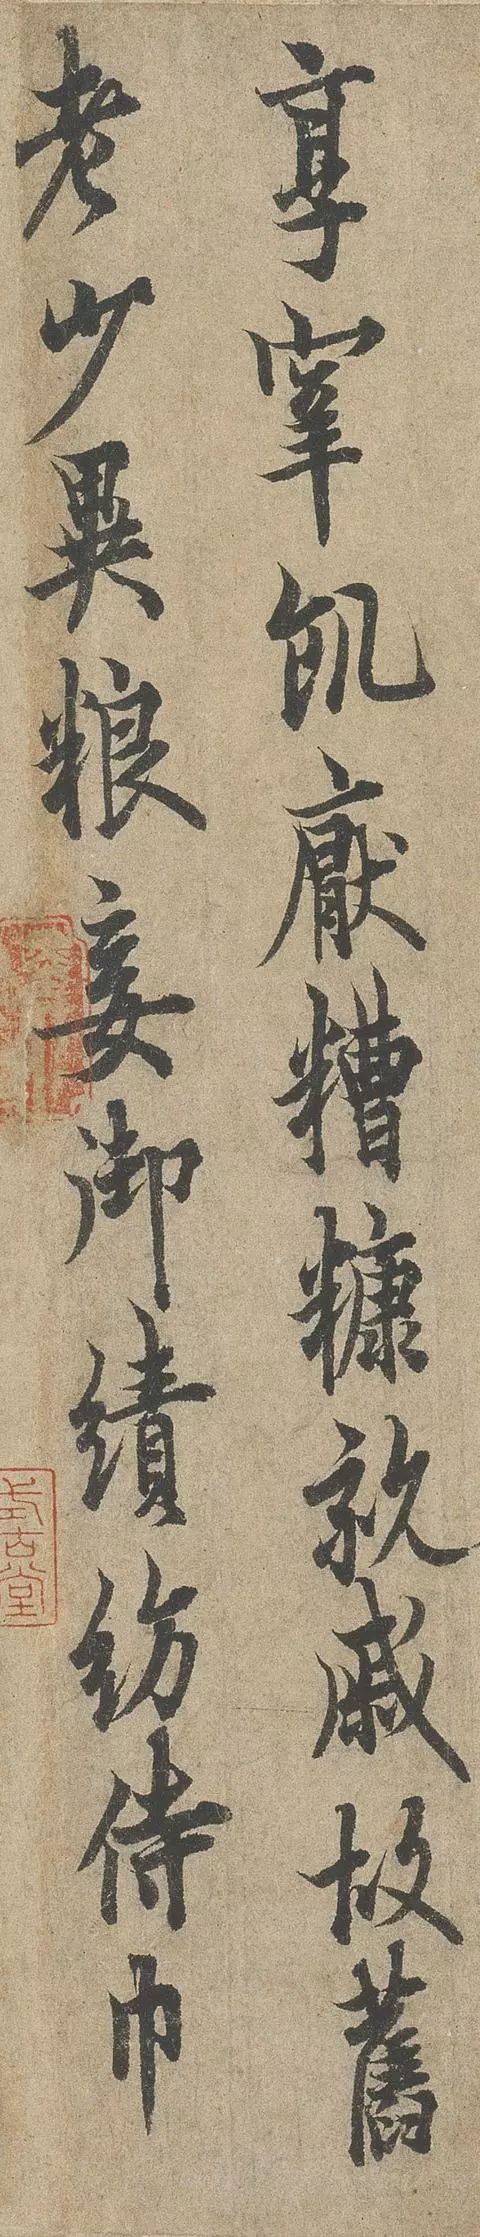 享宰飢厭糟糠親戚故舊
老少異粮妾御績紡侍巾
式古堂